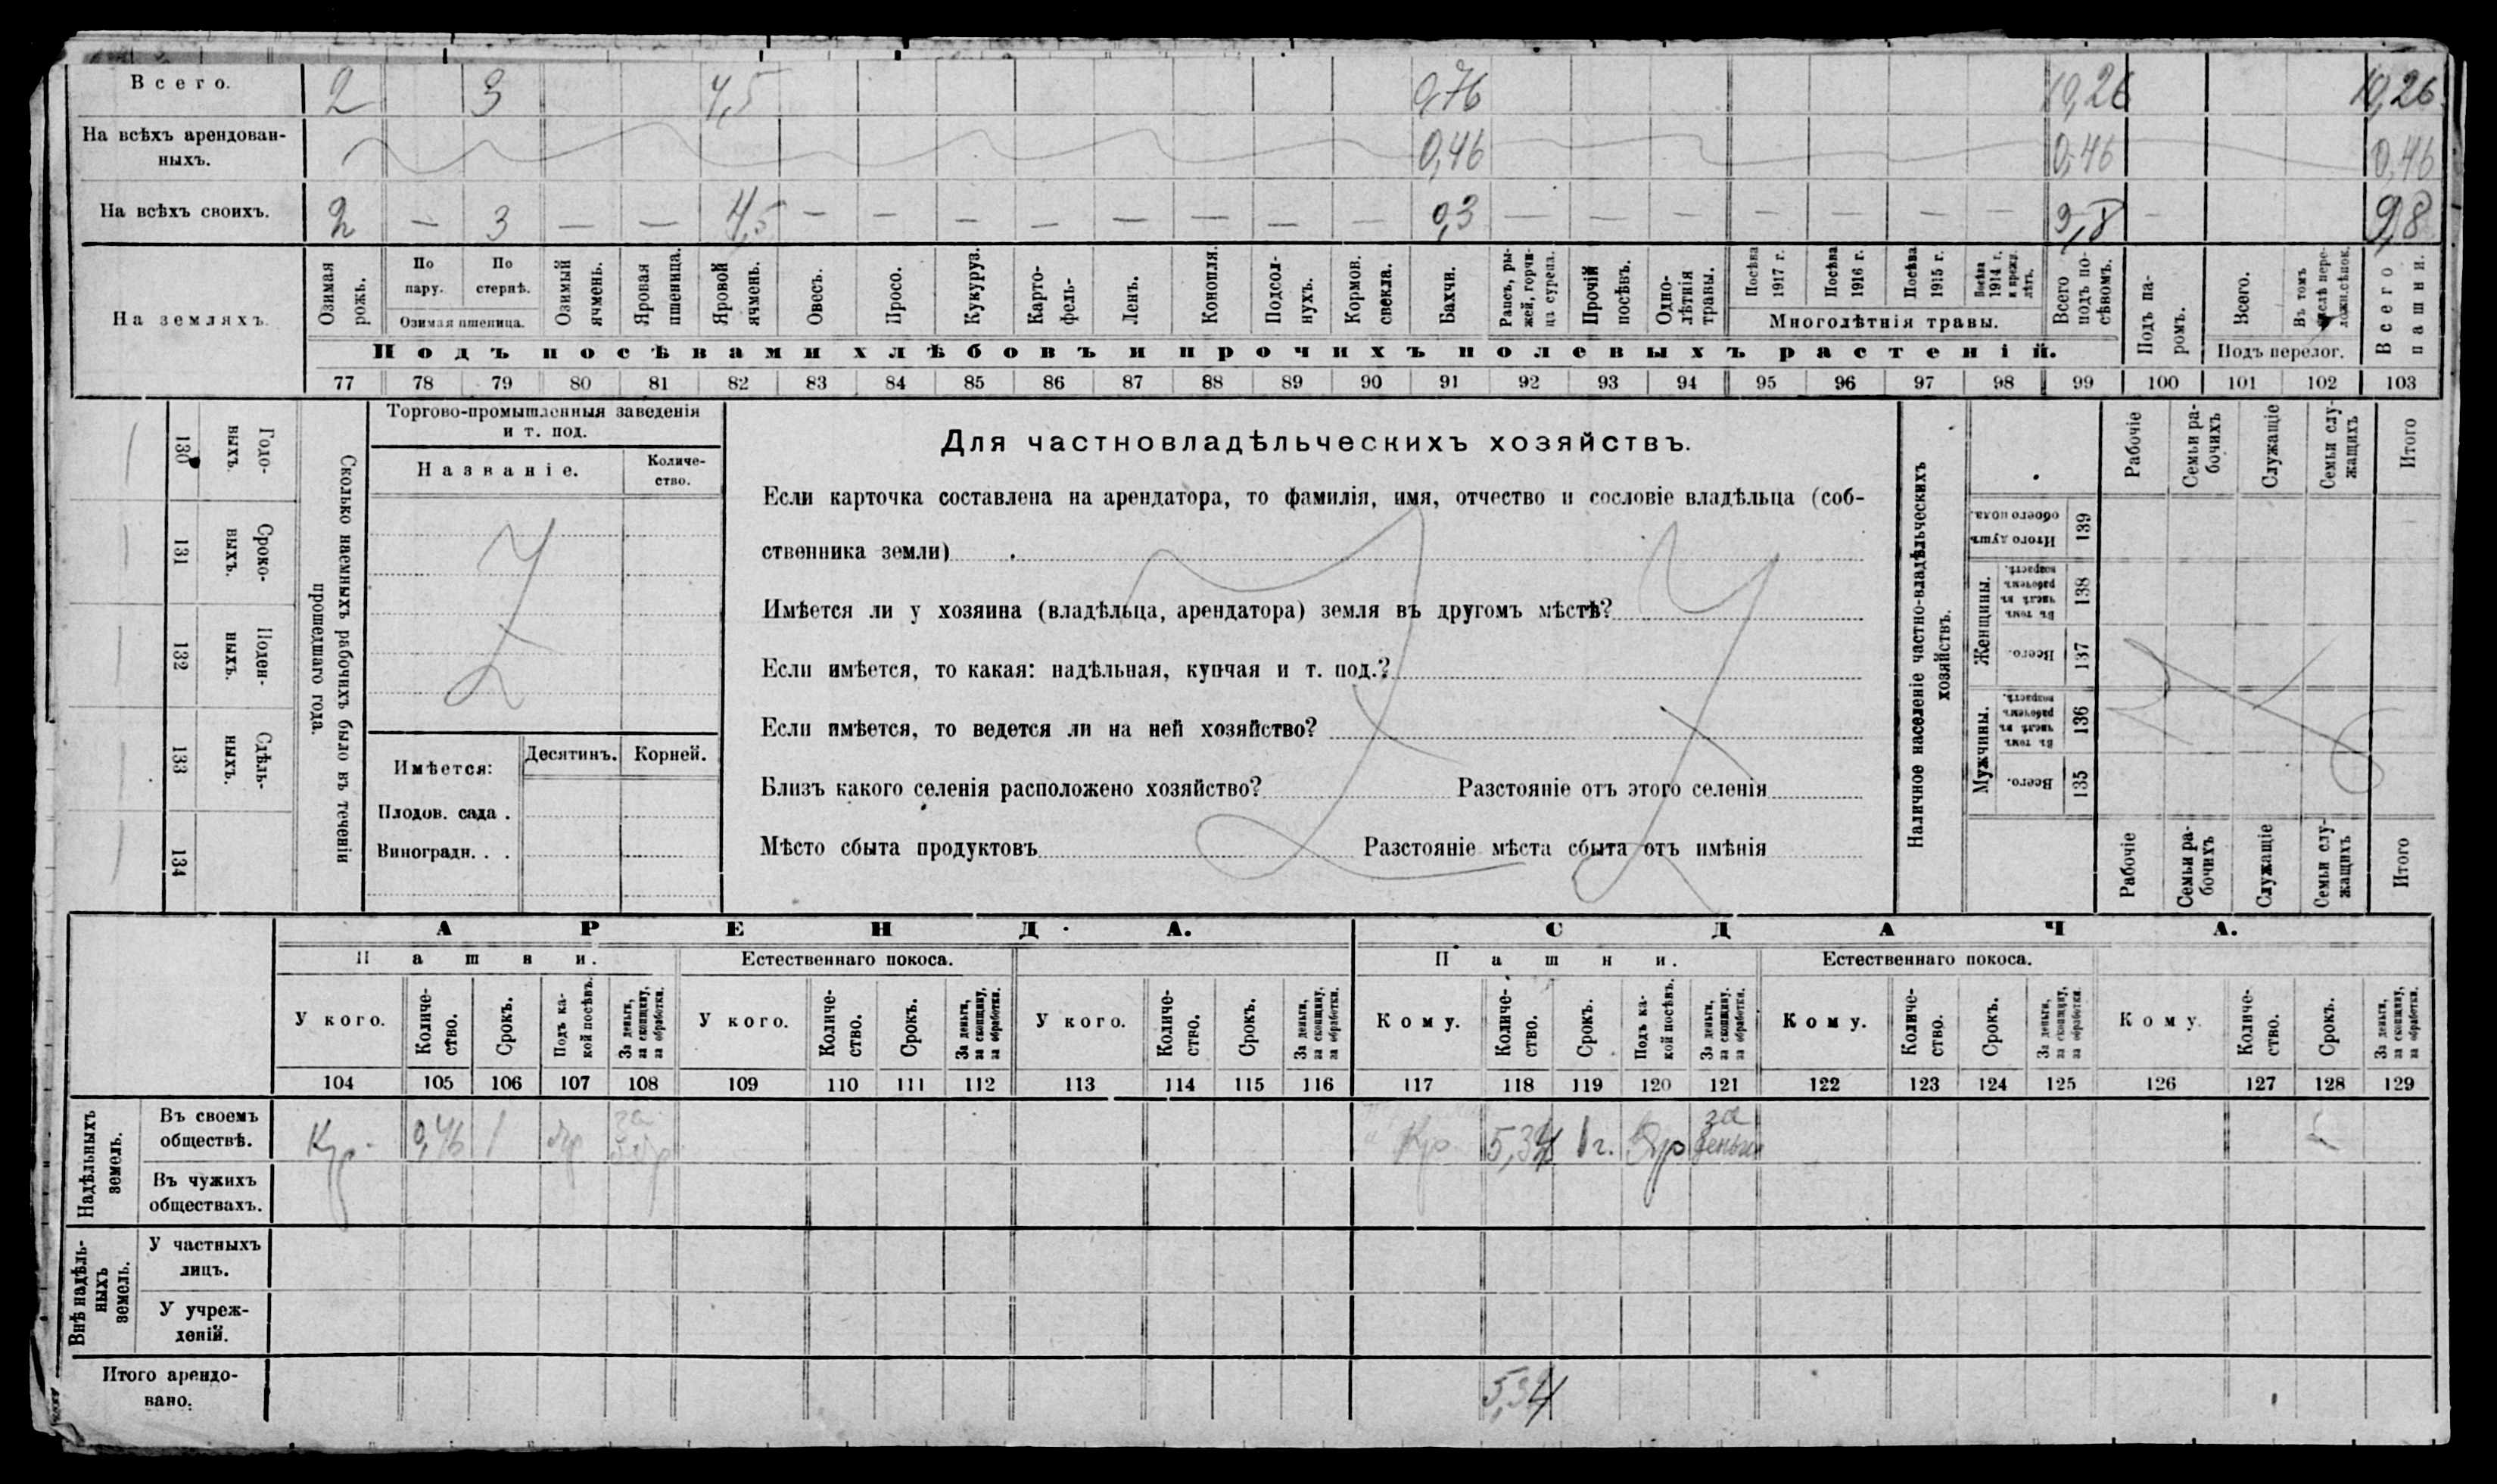 Всего. 2 3 4,5 0,76 10,26 10,26
На всѣхъ арендован-
ныхъ. 0,46 0,46 0,46
На всѣхъ своихъ. 2 — 3 — — 4,5 — — — — — — — — 0,3 — — — — — — — 9,8 — 9,8
На земляхъ.
Озимая рожь.
По пару.
По стернѣ.
Озимая пшеница.
Озимый ячмень.
Яровая пшеница.
Яровой ячмень.
Овесъ.
Просо.
Кукуруз.
Карто-
фель-
Ленъ.
Конопля.
Подсол-
нухъ.
Кормов. свекла.
Бахчи.
Рапсъ, ры-
жей, горчи-
ца сурепа.
Прочій посѣвъ.
Одно-
лѣтнія травы.
Посѣва 1917 г.
Посѣва 1916 г.
Посѣва 1915 г.
Посѣва 1914 г. и прежн. лѣтъ.
Многолѣтнія травы.
Всего подъ по-
сѣвомъ.
Подъ па-
ромъ.
Всего.
Въ томъ числѣ пере-
ложн. сѣнок.
Подъ перелог.
Всего пашни.
Подъ посѣвами хлѣбовъ и прочихъ полевыхъ растеній.
77 78 79 80 81 82 83 84 85 86 87 88 89 90 91 92 93 94 95 96 97 98 99 100 101 102 103
Сколько наемныхъ рабочихъ было въ теченіи
прошедшаго года.
Годо-
выхъ.
130
Сроко-
выхъ.
131
Поден-
ныхъ.
132
Сдѣль-
ныхъ.
133
134
Торгово-промышленныя заведенія
и т. под.
Названіе.
Количе-
ство.
Имѣется:
Десятинъ. Корней.
Плодов. сада .
Виноградн. . .
Для частновладѣльческихъ хозяйствъ.
Если карточка составлена на арендатора, то фамилія, имя, отчество и сословіе владѣльца (соб-
ственника земли)
Имѣется ли у хозяина (владѣльца, арендатора) земля въ другомъ мѣстѣ?
Если имѣется, то какая: надѣльная, купчая и т. под.?
Если имѣется, то ведется ли на ней хозяйство?
Близъ какого селенія расположено хозяйство? Разстояніе отъ этого селенія
Мѣсто сбыта продуктовъ Разстояніе мѣста сбыта отъ имѣнія
Наличное населеніе частно-владѣльческихъ
хозяйствъ.
Рабочіе
Семьи ра-
бочихъ
Служащіе
Семьи слу-
жащихъ
Итого
Итого душъ обоего пола.
139
Женщины.
Въ томъ числѣ въ рабочемъ возрастѣ.
138
Всего.
137
Мужчины.
Въ томъ числѣ въ рабочемъ возрастѣ.
136
Всего.
135
Рабочіе
Семьи ра-
бочихъ
Служащіе
Семьи слу-
жащихъ
Итого
АРЕНДА. СДАЧА.
Пашни. Естественнаго покоса. Пашни. Естественнаго покоса.
У кого.
Количе-
ство.
Срокъ.
Подъ ка-
кой посѣвъ.
За деньги, за скопщину, за обработки.
У кого.
Количе-
ство.
Срокъ.
За деньги, за скопщину, за обработки.
У кого.
Количе-
ство.
Срокъ.
За деньги, за скопщину, за обработки.
Кому.
Количе-
ство.
Срокъ.
Подъ ка-
кой посѣвъ.
За деньги, за скопщину. за обработки.
Кому.
Количе-
ство.
Срокъ.
За деньги, за скопщину, за обработки.
Кому.
Количе-
ство.
Срокъ.
За деньги, за скопщину, за обработки.
104 105 106 107 108 109 110 111 112 113 114 115 116 117 118 119 120 121 122 123 124 125 126 127 128 129
Надѣльныхъ земель.
Въ своемъ
обществѣ.
Кр. 0,46 1 за Кр 5,34 1 г. Яр за деньги
Въ чужихъ
обществахъ.
Внѣ надѣль-
ныхъ земель.
У частныхъ
лицъ.
У учреж-
деній.
Итого арендо-
вано. 5,34